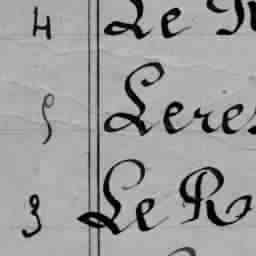 4 Le
5 Leres
3 Le R